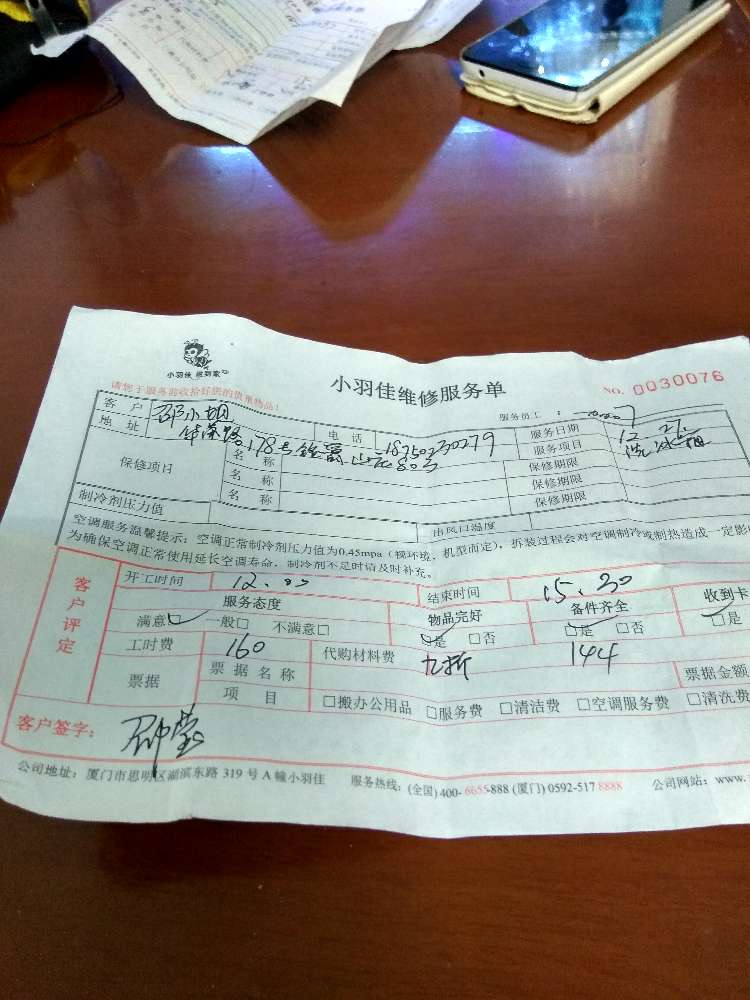 小羽佳 做到家
小羽佳维修服务单
No. 0030076
请您于服务前收拾好您的贵重物品!
服务员工:
客户 邵小姐 电话 18750230279 服务日期 12 27
地址 178号 803 服务项目 洗冰箱
保修项目 名称 保修期限
名称 保修期限
名称 保修期限
制冷剂压力值 出风口温度
空调服务温馨提示:空调正常制冷剂压力值为0.45mpa(视环境、机型而定),拆装过程会对空调制冷或制热造成一定影
为确保空调正常使用延长空调寿命,制冷剂不足时请及时补充。
客户评定
开工时间 12.00 结束时间 15.30
服务态度 物品完好 备件齐全 收到卡
满意□ 一般□ 不满意□ □是 □否 □是 □否 □是
工时费 160 代购材料费 九折 144
票据 票据名称 票据金额
项目 □搬办公用品 □服务费 □清洁费 □空调服务费 □清洗费
客户签字: 邵莹
公司地址:厦门市思明区湖滨东路 319 号 A 幢小羽佳 服务热线:(全国) 400-6655-888 (厦门) 0592-517 8888 公司网站:www.